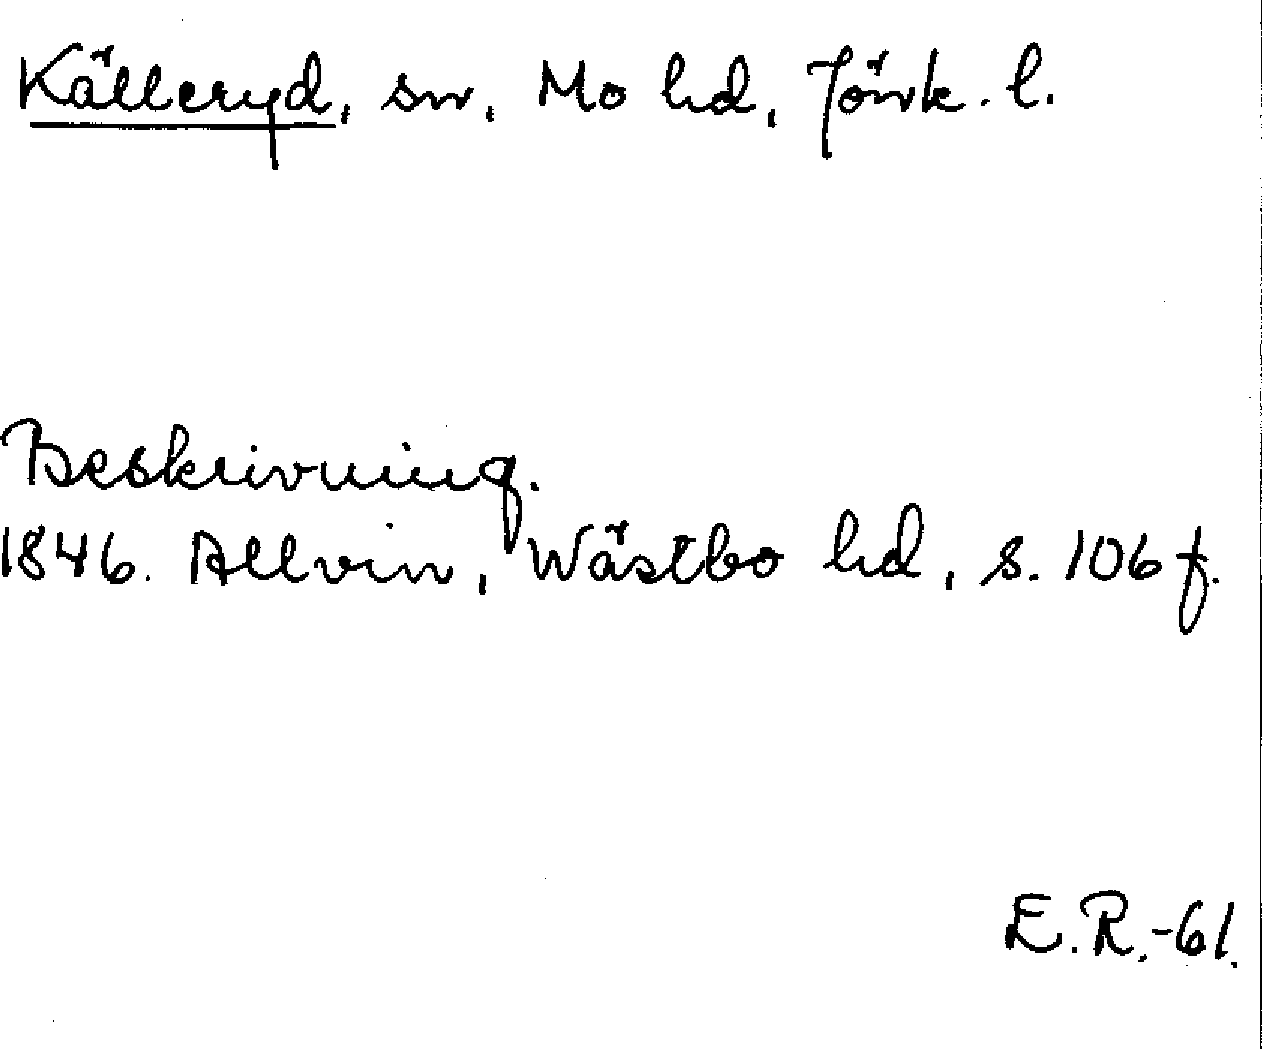 Källeryd, sn, Mo hd, Jönk. l.
Beskrivning.
1846. Allvin, Wästbo hd, s. 106 f.
E.R.-61.